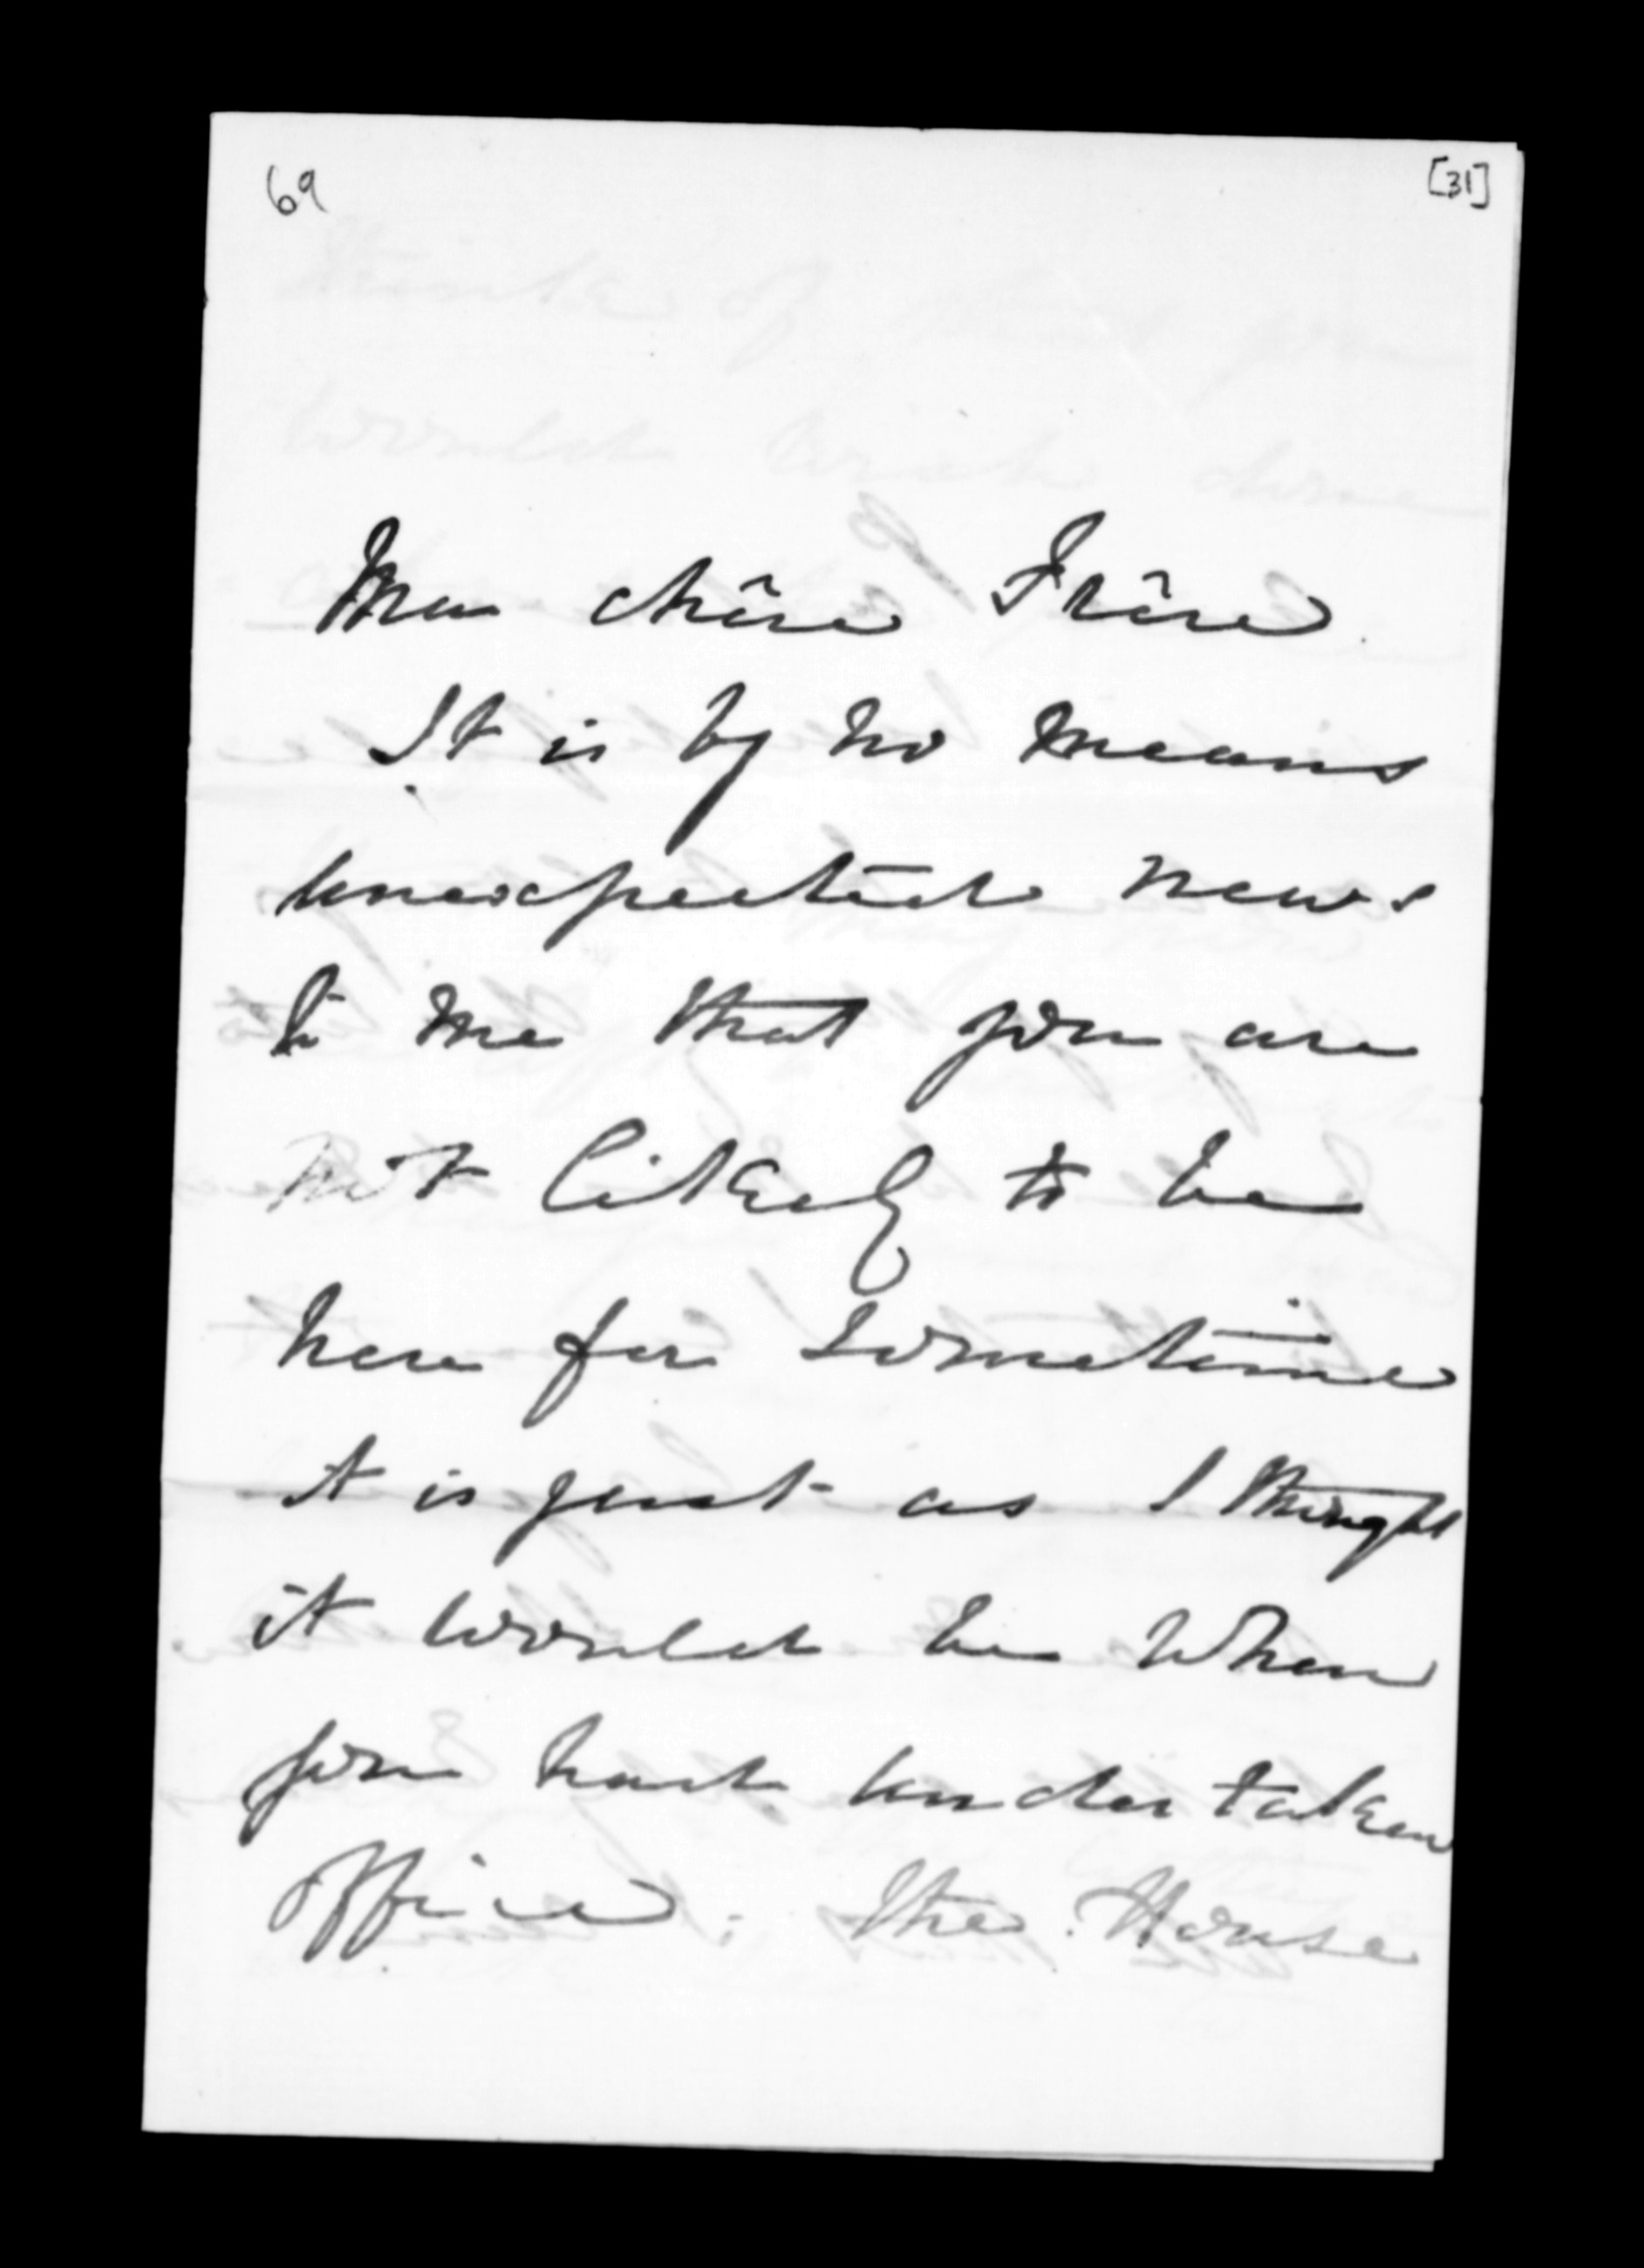 69 [31]
Mon chêre Frêre.
It is by no means
unexpected news
to me that you are
not likely to be
here for sometime
it is just as I thought
it would be when
you had undertaken
office. The House